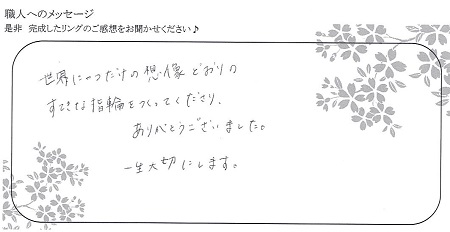 職人へのメッセージ
是非 完成したリングのご感想をお聞かせください♪
世界に一つだけの想像どおりの
すてきな指輪をつくってくださり、
ありがとうございました。
一生大切にします。